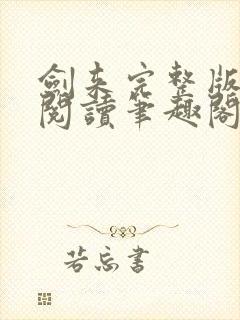 劍来完整版
閱讀筆趣閣
若忘書